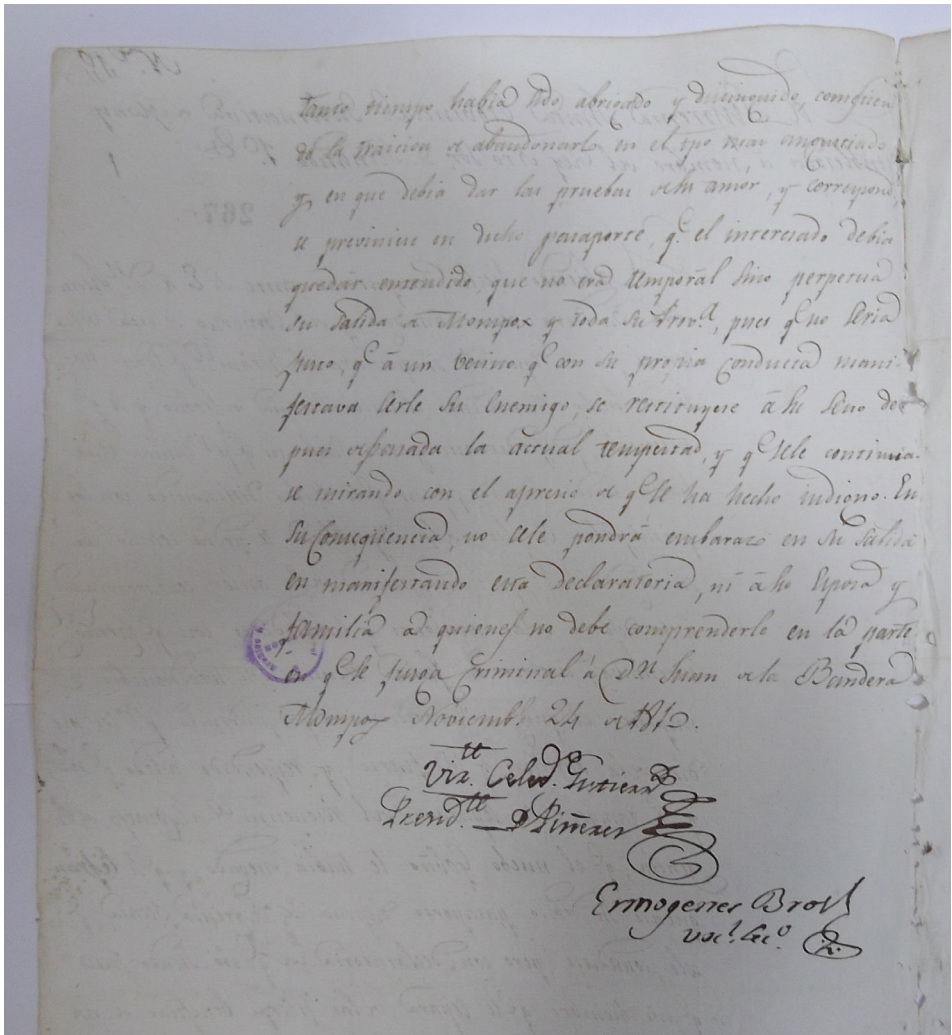 tanto tiempo habia sido abrigado y distinguido, cometien
do la traicion de abandonarlo en el tpo mas
y en que debia dar las pruebas de su amor, y correspond,
se previniese en dicho pasaporte, q.e el interesado debia
quedar entendido, que no era temporal sino perpetua
su salida de Mompox y toda su Prov.a, pues q.e no seria
justo, q.e â un vecino q.e con su propia conducta mani-
festava serle su enemigo, se restituyese â su seno des
pues de pasada la actual tempestad, y q.e se le continua-
se mirando con el aprecio de q.e se ha hecho indigno. En
su consequencia, no se le pondrá embarazo en su salida
en manifestando esta declaratoria, ni â su Esposa y
familia a quienes no debe comprenderle en la parte
en q.e se juzga Criminal â D.n Juan de la Bandera
Mompox Noviemb. 24 de 1812.
Viz.te Celed.o Gutierr.z
Presid.te de Piñeres
Ermogenes Brot
Voc.l Sec.o
267